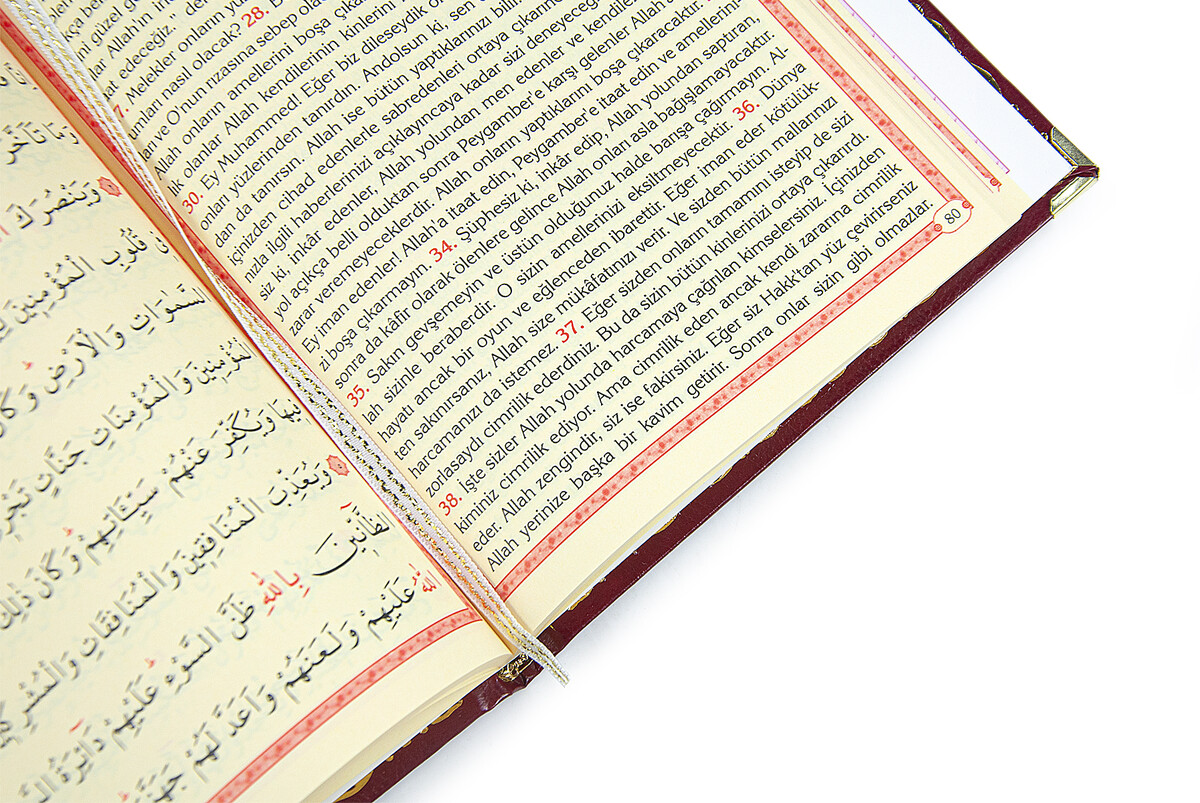 ni güzel
Allah'ın
at edeceğiz.,, der
7. Melekler onların yüz
umları nasıl olacak? 28.
ve O'nun rızasına sebep ola
Allah onların amellerini boşa çıka
lik olanlar Allah kendilerinin kinlerini
30. Ey Muhammed! Eğer biz dileseydik o
onları yüzlerinden tanırdın. Andolsun ki, sen
dan da tanırsın. Allah ise bütün yaptıklarınızı bilir
içinizden cihad edenlerle sabredenleri ortaya çıkarınc
nızla ilgili haberlerinizi açıklayıncaya kadar sizi deneyeceğ
siz ki, inkâr edenler, Allah yolundan men edenler ve kendiler
yol açıkça belli olduktan sonra Peygamber'e karşı gelenler Allah'a
zarar veremeyeceklerdir. Allah onların yaptıklarını boşa çıkaracaktır.
Ey iman edenler! Allah'a itaat edin, Peygamber'e itaat edin ve amellerini-
zi boşa çıkarmayın. 34. Şüphesiz ki, inkâr edip, Allah yolundan saptıran,
sonra da kâfir olarak ölenlere gelince Allah onları asla bağışlamayacaktır.
35. Sakın gevşemeyin ve üstün olduğunuz halde barışa çağırmayın. Al-
lah sizinle beraberdir. O sizin amellerinizi eksiltmeyecektir. 36. Dünya
hayatı ancak bir oyun ve eğlenceden ibarettir. Eğer iman eder kötülük-
ten sakınırsanız, Allah size mükâfatınızı verir. Ve sizden bütün mallarınızı
harcamanızı da istemez. 37. Eğer sizden onların tamamını isteyip de sizi
zorlasaydı cimrilik ederdiniz. Bu da sizin bütün kinlerinizi ortaya çıkarırdı.
38. İşte sizler Allah yolunda harcamaya çağrılan kimselersiniz. İçinizden
kiminiz cimrilik ediyor. Ama cimrilik eden ancak kendi zararına cimrilik
eder. Allah zengindir, siz ise fakirsiniz. Eğer siz Hakk'tan yüz çevirirseniz
Allah yerinize başka bir kavim getirir. Sonra onlar sizin gibi olmazlar.
80
وَمَا تَاَخَّرَ
وَيَنْصُرَكَ
قُلُوبِ الْمُؤْمِنِينَ
السَّمٰوَاتِ وَالْاَرْضِ وَكَانَ
الْمُؤْمِنِينَ وَالْمُؤْمِنَاتِ جَنَّاتٍ تَجْرِي
فِيهَا وَيُكَفِّرَ عَنْهُمْ سَيِّئَاتِهِمْ وَكَانَ ذٰلِكَ
وَيُعَذِّبَ الْمُنَافِقِينَ وَالْمُنَافِقَاتِ وَالْمُشْرِكِينَ
الظَّانِّينَ بِاللّٰهِ ظَنَّ السَّوْءِ عَلَيْهِمْ دَائِرَةُ
اللّٰهُ عَلَيْهِمْ وَلَعَنَهُمْ وَاَعَدَّ لَهُمْ جَهَنَّمَ